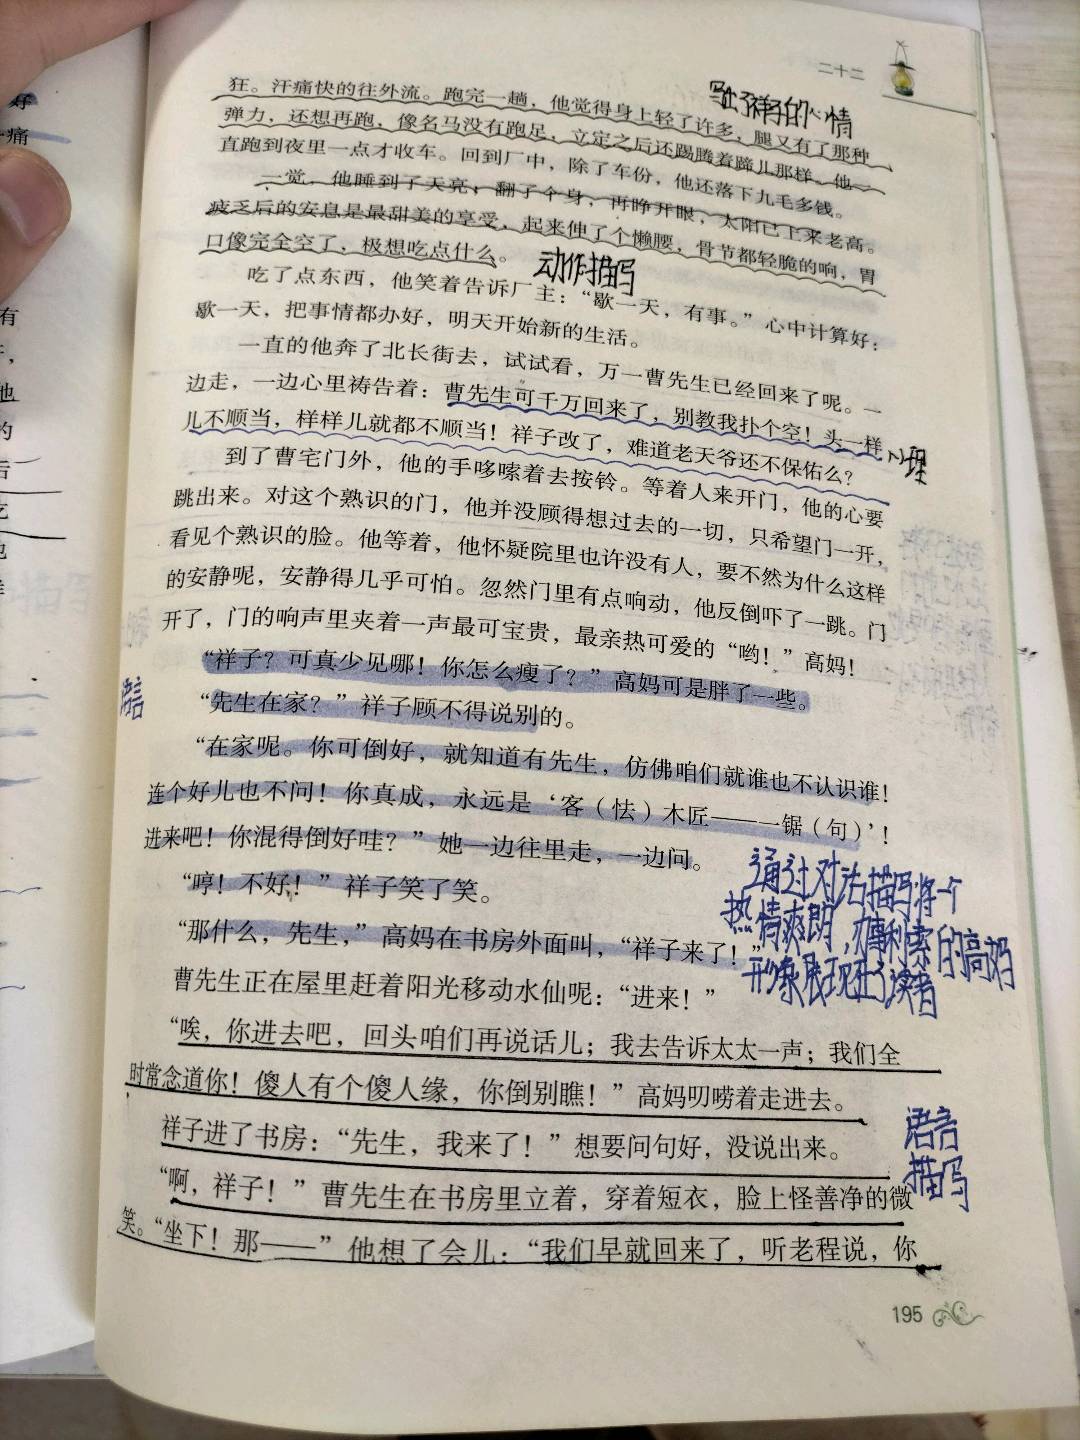 二十二
狂。汗痛快的往外流。跑完一趟，他觉得身上轻了许多，腿又有了那种
写出了祥子的心情
弹力，还想再跑，像名马没有跑足，立定之后还踢腾着蹄儿那样。他一
直跑到夜里一点才收车。回到厂中，除了车份，他还落下九毛多钱。
一觉，他睡到了天亮；翻了个身，再睁开眼，太阳已上来老高。
疲乏后的安息是最甜美的享受，起来伸了个懒腰，骨节都轻脆的响，胃
口像完全空了，极想吃点什么。
动作描写
吃了点东西，他笑着告诉厂主：“歇一天，有事。”心中计算好：
歇一天，把事情都办好，明天开始新的生活。
一直的他奔了北长街去，试试看，万一曹先生已经回来了呢。一
边走，一边心里祷告着：曹先生可千万回来了，别教我扑个空！头一样
儿不顺当，样样儿就都不顺当！祥子改了，难道老天爷还不保佑么？
心理
到了曹宅门外，他的手哆嗦着去按铃。等着人来开门，他的心要
跳出来。对这个熟识的门，他并没顾得想过去的一切，只希望门一开，
看见个熟识的脸。他等着，他怀疑院里也许没有人，要不然为什么这样
的安静呢，安静得几乎可怕。忽然门里有点响动，他反倒吓了一跳。门
开了，门的响声里夹着一声最可宝贵，最亲热可爱的“哟！”高妈！
“祥子？可真少见哪！你怎么瘦了？”高妈可是胖了一些。
语言
“先生在家？”祥子顾不得说别的。
“在家呢。你可倒好，就知道有先生，仿佛咱们就谁也不认识谁！
连个好儿也不问！你真成，永远是‘客（怯）木匠——一锯（句）’！
进来吧！你混得倒好哇？”她一边往里走，一边问。
“哼！不好！”祥子笑了笑。
“那什么，先生，”高妈在书房外面叫，“祥子来了！”
通过对话描写将一个
热情爽朗，办事利索的高妈
形象展现在了读者
曹先生正在屋里赶着阳光移动水仙呢：“进来！”
“唉，你进去吧，回头咱们再说话儿；我去告诉太太一声；我们全
时常念道你！傻人有个傻人缘，你倒别瞧！”高妈叨唠着走进去。
祥子进了书房：“先生，我来了！”想要问句好，没说出来。
语言
描写
“啊，祥子！”曹先生在书房里立着，穿着短衣，脸上怪善净的微
笑。“坐下！那——”他想了会儿：“我们早就回来了，听老程说，你
195